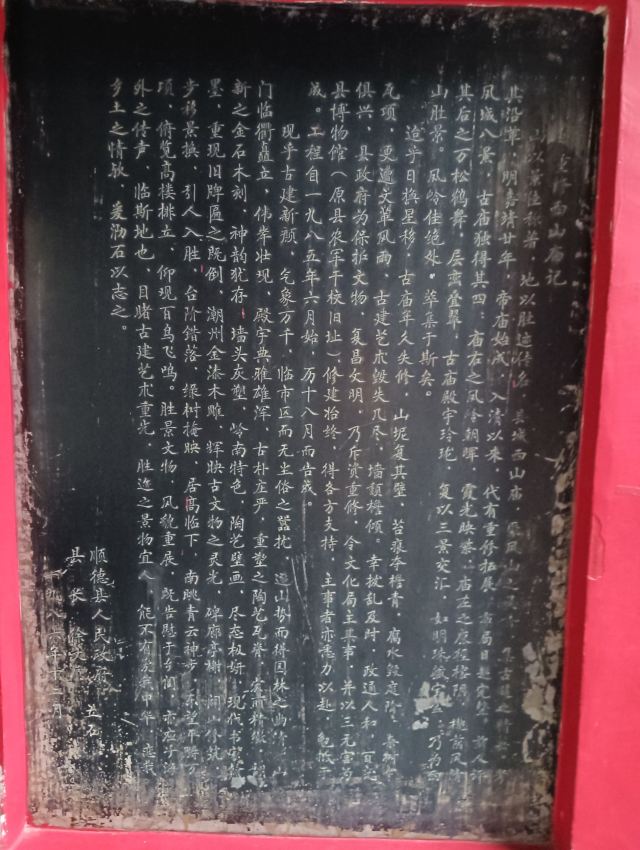 重修西山庙记
山以景佳称著，地以胜迹传名。县城西山庙，
其沿革，明嘉靖廿年，帝庙始成，入清以来，代有重修拓展，布局日趋完
凤城八景，古庙独得其四：庙右之凤岭朝晖，霞光映
其后之万松鹤舞，层峦叠翠，古庙殿宇玲珑，复以三景交汇，如明珠
山胜景。凤岭佳绝处，萃集于斯矣。
迨乎日换星移，古庙年久失修，山坭复其壁，苔痕夺檐青，腐水毁庭阶
瓦项，更遭文革风雨，古建艺术毁失几尽，墙颓檐倾，幸拨乱及时，政通人和，百
俱兴，县政府为保护文物，复昌文明，乃斥资重修，令文化局主其事，并以三元宫为
县博物馆（原县农军干校旧址），修建始终，得各方支持，主事者亦悉力以赴，
成。工程自一九八五年六月始，历十八月而告成。
现乎古建新颜，气象万千，临市区而无尘俗之嚣扰，造山势而得园林之幽
门临衢矗立，伟岸壮现，殿宇典雅雄浑，古朴庄严，重塑之陶艺瓦脊
新之金石木刻，神韵犹存，墙头灰塑，岭南特色，陶艺壁画，尽态极妍，现代书
墨，重现旧牌匾之既倒，潮州金漆木雕，辉映古文物之灵光，碑廊亭榭，
步移景换，引人入胜，台阶错落，绿树掩映，居高临下，南眺青云神步，东望平畴万
顷，俯览高楼排立，仰现百鸟飞鸣。胜景文物，风貌重展，既告慰于乡
外之传声，临斯地也，目睹古建艺术重光，胜迹之景物宜人，能不有爱我中华，恋我
乡土之情欤，爰泐石以志之。
顺德县人民政府 立石
县 长
一九八六年十二月